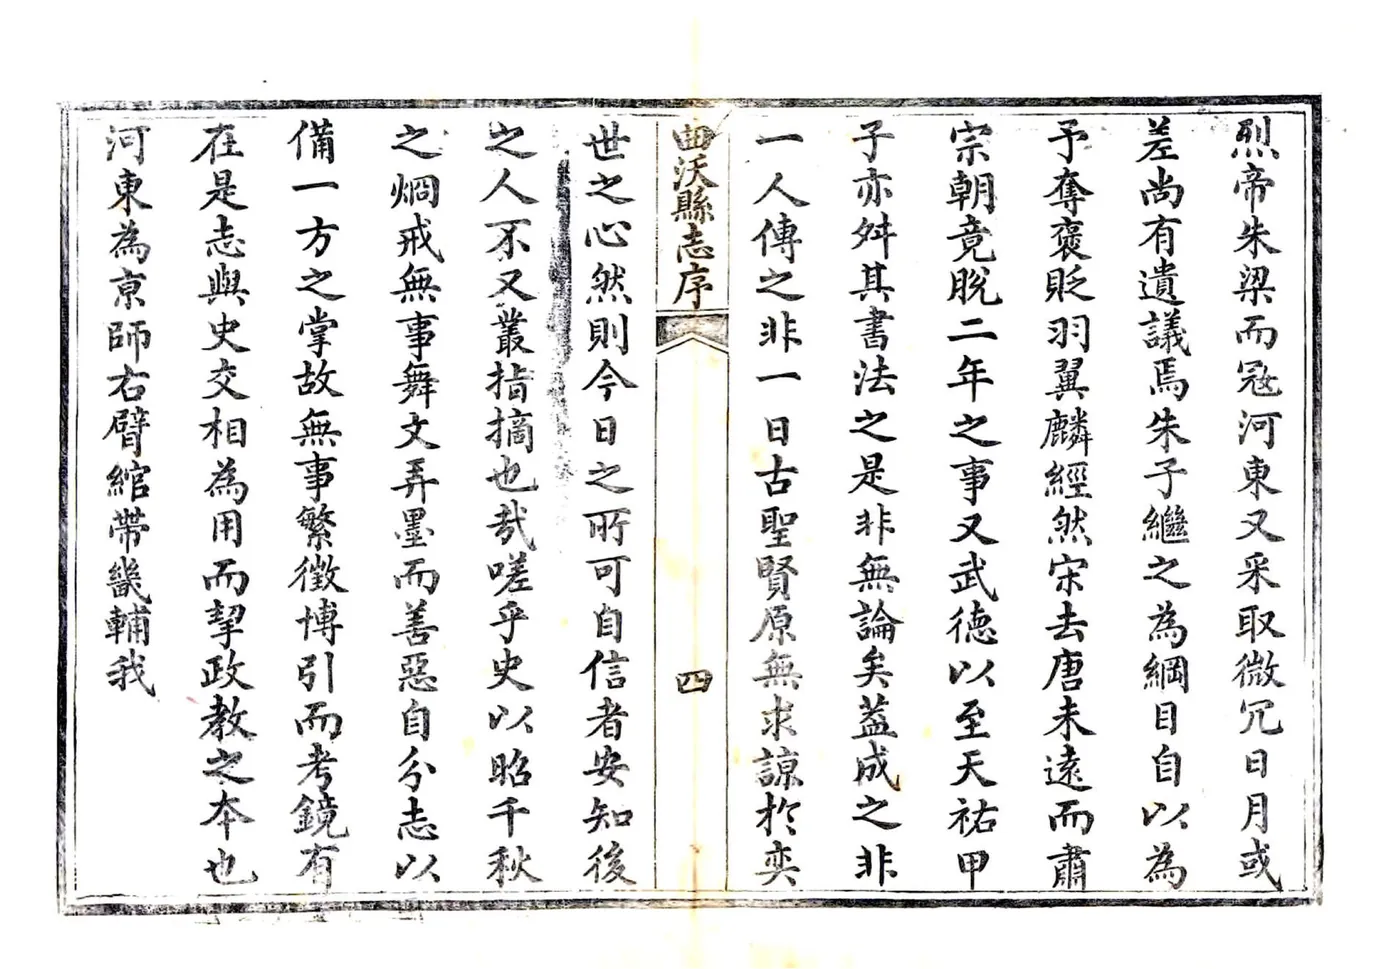 烈帝朱梁而冦河東又采取微冗日月或
差尚有遺議焉朱子繼之為綱目自以為
予奪褒貶羽翼麟經然宋去唐未遠而肅
宗朝竟脫二年之事又武德以至天祐甲
子亦舛其書法之是非無論矣蓋成之非
一人傳之非一日古聖賢原無求諒於奕
曲沃縣志序
四
世之心然則今日之所可自信者安知後
之人不又叢指摘也哉嗟乎史以昭千秋
之烱戒無事舞文弄墨而善惡自分志以
備一方之掌故無事繁徵博引而考鏡有
在是志與史交相為用而挈政教之本也
河東為京師右臂綰帶畿輔我